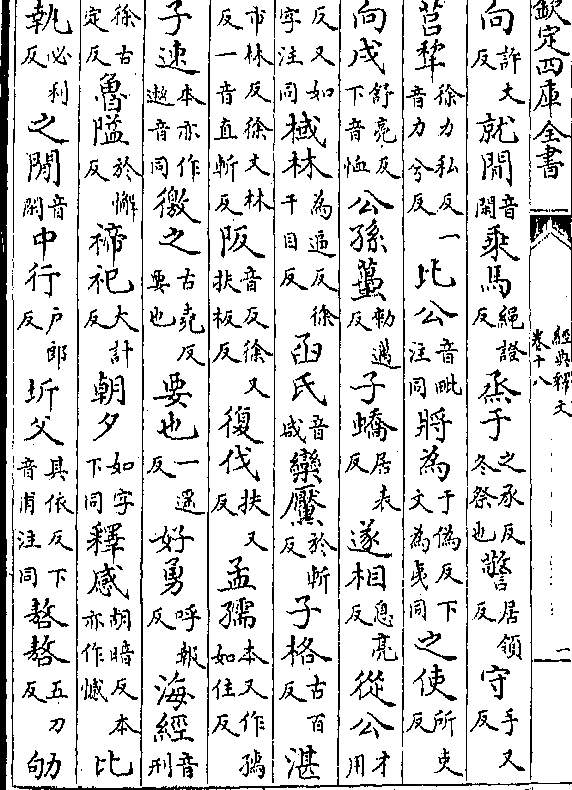 欽定四庫全書 經典釋文 卷十八 一
向許丈反就閒音閑乘馬繩證反烝于之承反冬祭也警居領反守手又反
莒犂徐力私反一音力兮反比公音毗注同將為于偽反下文為夷同之使所吏反
向戌舒亮反下音恤公孫蠆勑邁反子蟜居表反遂相息亮反從公才用
反又如字注同棫林為逼反徐于目反函氏音咸欒黶於斬反子格古百反湛
市林反徐丈林反一音直斬反阪音反徐又扶板反復伐扶又反孟孺本又作如住反
子速本亦作遬音同徼之古堯反要也要也一遥反好勇呼報反海經音刑
徐古定反魯隘於懈反禘祀大計反朝夕如字下同釋感胡暗反本亦作憾比
執必利反之閒音閑中行户郎反圻父其依反下音甫注同嗸嗸五刀反劬